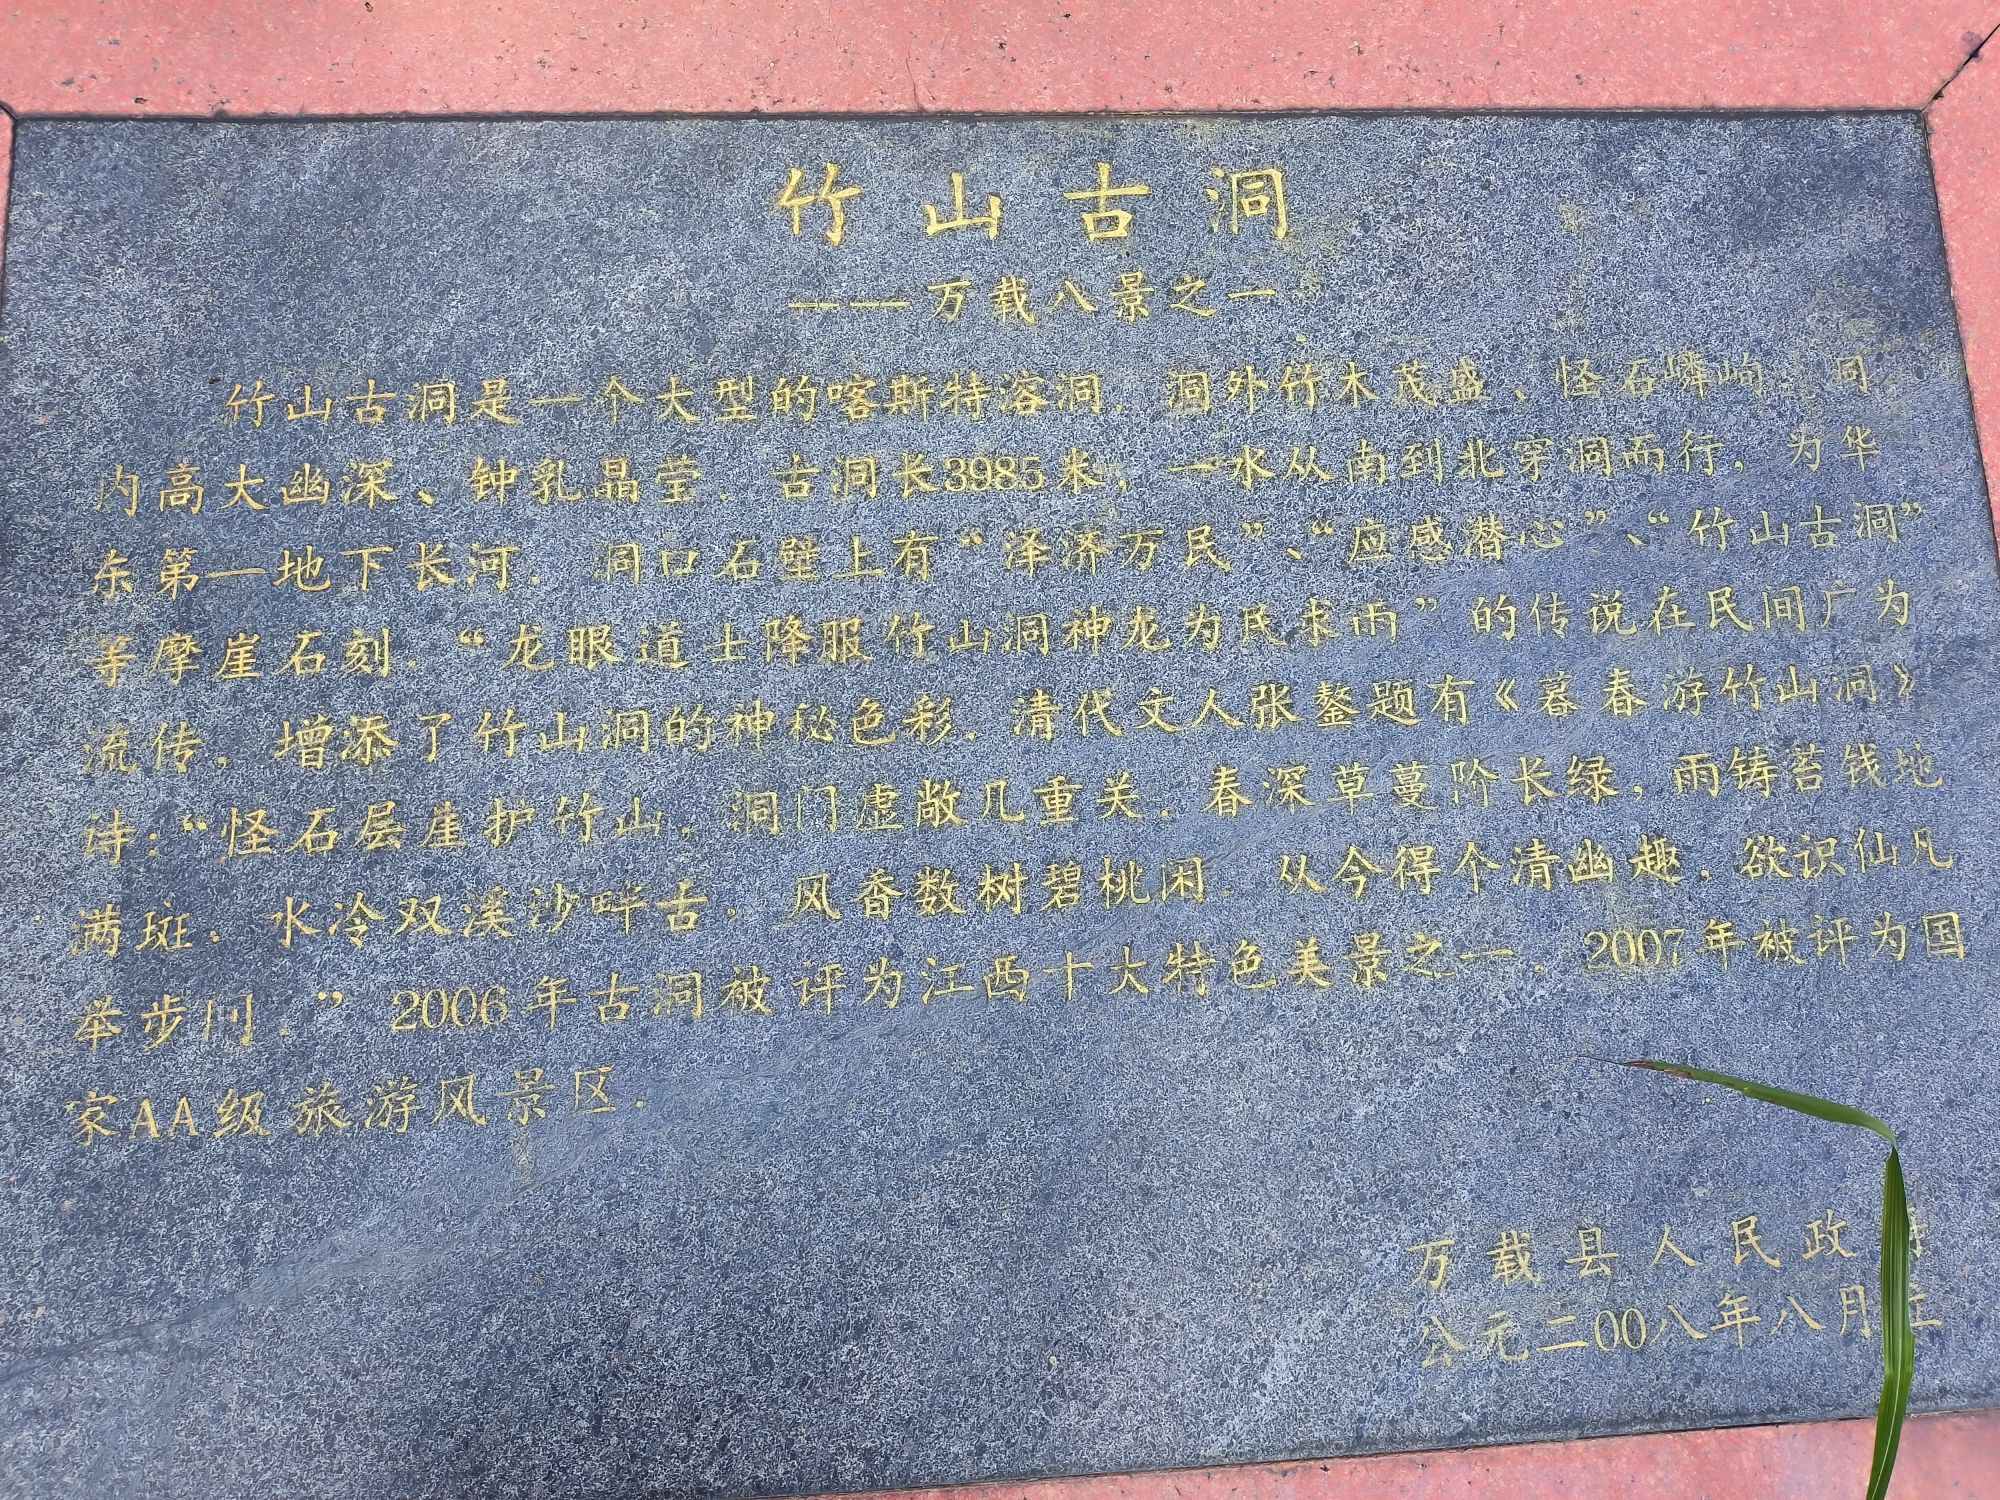 竹山古洞
————万载八景之一
竹山古洞是一个大型的喀斯特溶洞．洞外竹木茂盛、怪石嶙峋、洞
内高大幽深、钟乳晶莹．古洞长3985米，一水从南到北穿洞而行，为华
东第一地下长河．洞口石壁上有“泽济万民”、“应感潜心”、“竹山古洞”
等摩崖石刻．“龙眼道士降服竹山洞神龙为民求雨”的传说在民间广为
流传，增添了竹山洞的神秘色彩．清代文人张鏊题有《暮春游竹山洞》
诗：“怪石层崖护竹山，洞门虚敞几重关．春深草蔓阶长绿，雨铸苔钱地
满斑．水冷双溪沙畔古．风香数树碧桃闲．从今得个清幽趣，欲识仙凡
举步间．”2006年古洞被评为江西十大特色美景之一．2007年被评为国
家AA级旅游风景区．
万载县人民政府
公元二00八年八月立